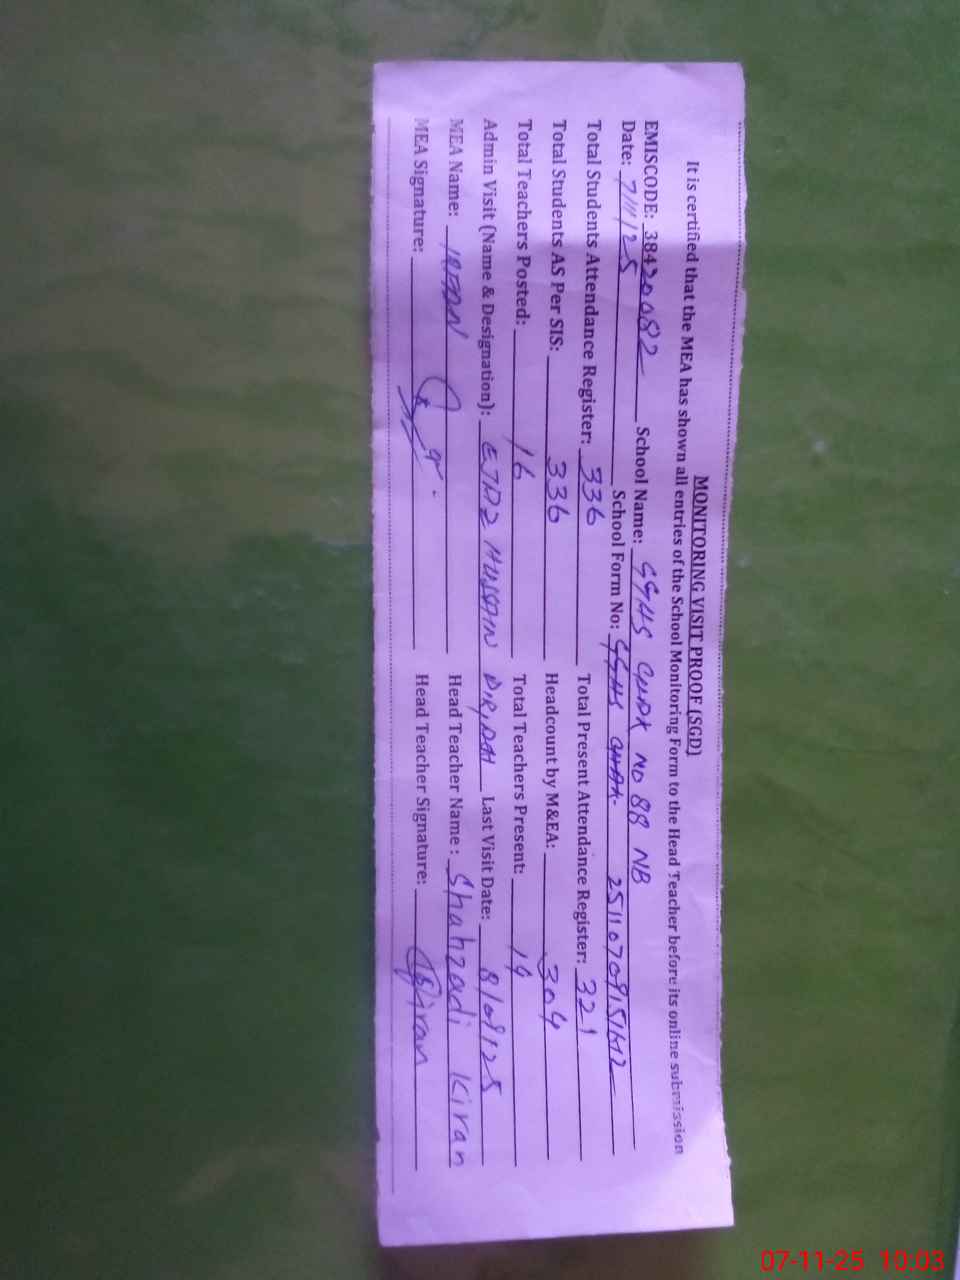 MONITORING VISIT PROOF (SGD)
It is certified that the MEA has shown all entries of the School Monitoring Form to the Head Teacher before its online submission
EMISCODE: 38420082 School Name: GGHS CHAK NO 88 NB
Date: 7/11/25 School Form No: GGHS CHAK 25110709151612
Total Students Attendance Register: 336 Total Present Attendance Register: 321
Total Students AS Per SIS: 336 Headcount by M&EA: 304
Total Teachers Posted: 16 Total Teachers Present: 14
Admin Visit (Name & Designation): EJAZ HUSSAIN Last Visit Date: 8/09/25
MEA Name: IRFAN Head Teacher Name: Shahzadi Kiran
MEA Signature: Head Teacher Signature: Kiran
07-11-25 10:03